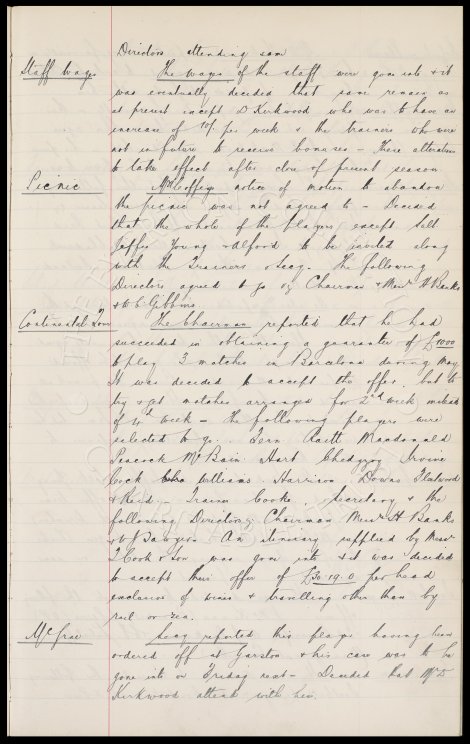 Directors attending same
Staff Wages
The wages of the staff were gone into & it
was eventually decided that same remain as
at present except D Kirkwood who was to have an
increase of 10/- per week & the trainers who were
not in future to receive bonuses - These alterations
to take effect after close of present season
Picnic
Mr Coffey's notice of motion to abandon
the picnic was not agreed to - Decided
that the whole of the players except
Jaffes Young & Alford to be invited along
with the Trainers & Secy. The following
Directors agreed to go vz Chairman & Messrs H Banks
& W C Gibbins
Continental Tour
The Chairman reported that he had
succeeded in obtaining a guarantee of £1000
to play 3 matches in Barcelona during May
It was decided to accept the offer, but to
try & get matches arranged for 2nd week instead
of 4th week - The following players were
selected to go. Fern Raitt Macdonald
Peacock McBain Hart Chedgzoy Irvine
Cock Williams Harrison Downs Fleetwood
& Reid. Trainer Cooke, Secretary & the
following Directors, Chairman Messrs H Banks
& W Sawyer. An itinerary supplied by Messrs
T Cook & Son was gone into & it was decided
to accept their offer of £30.19.0 per head
exclusive of wines & travelling other than by
rail or sea.
McGrae
Secy reported this player having been
ordered off at Garston & his case was to be
gone into on Friday next - Decided that Mr D
Kirkwood attend with him.